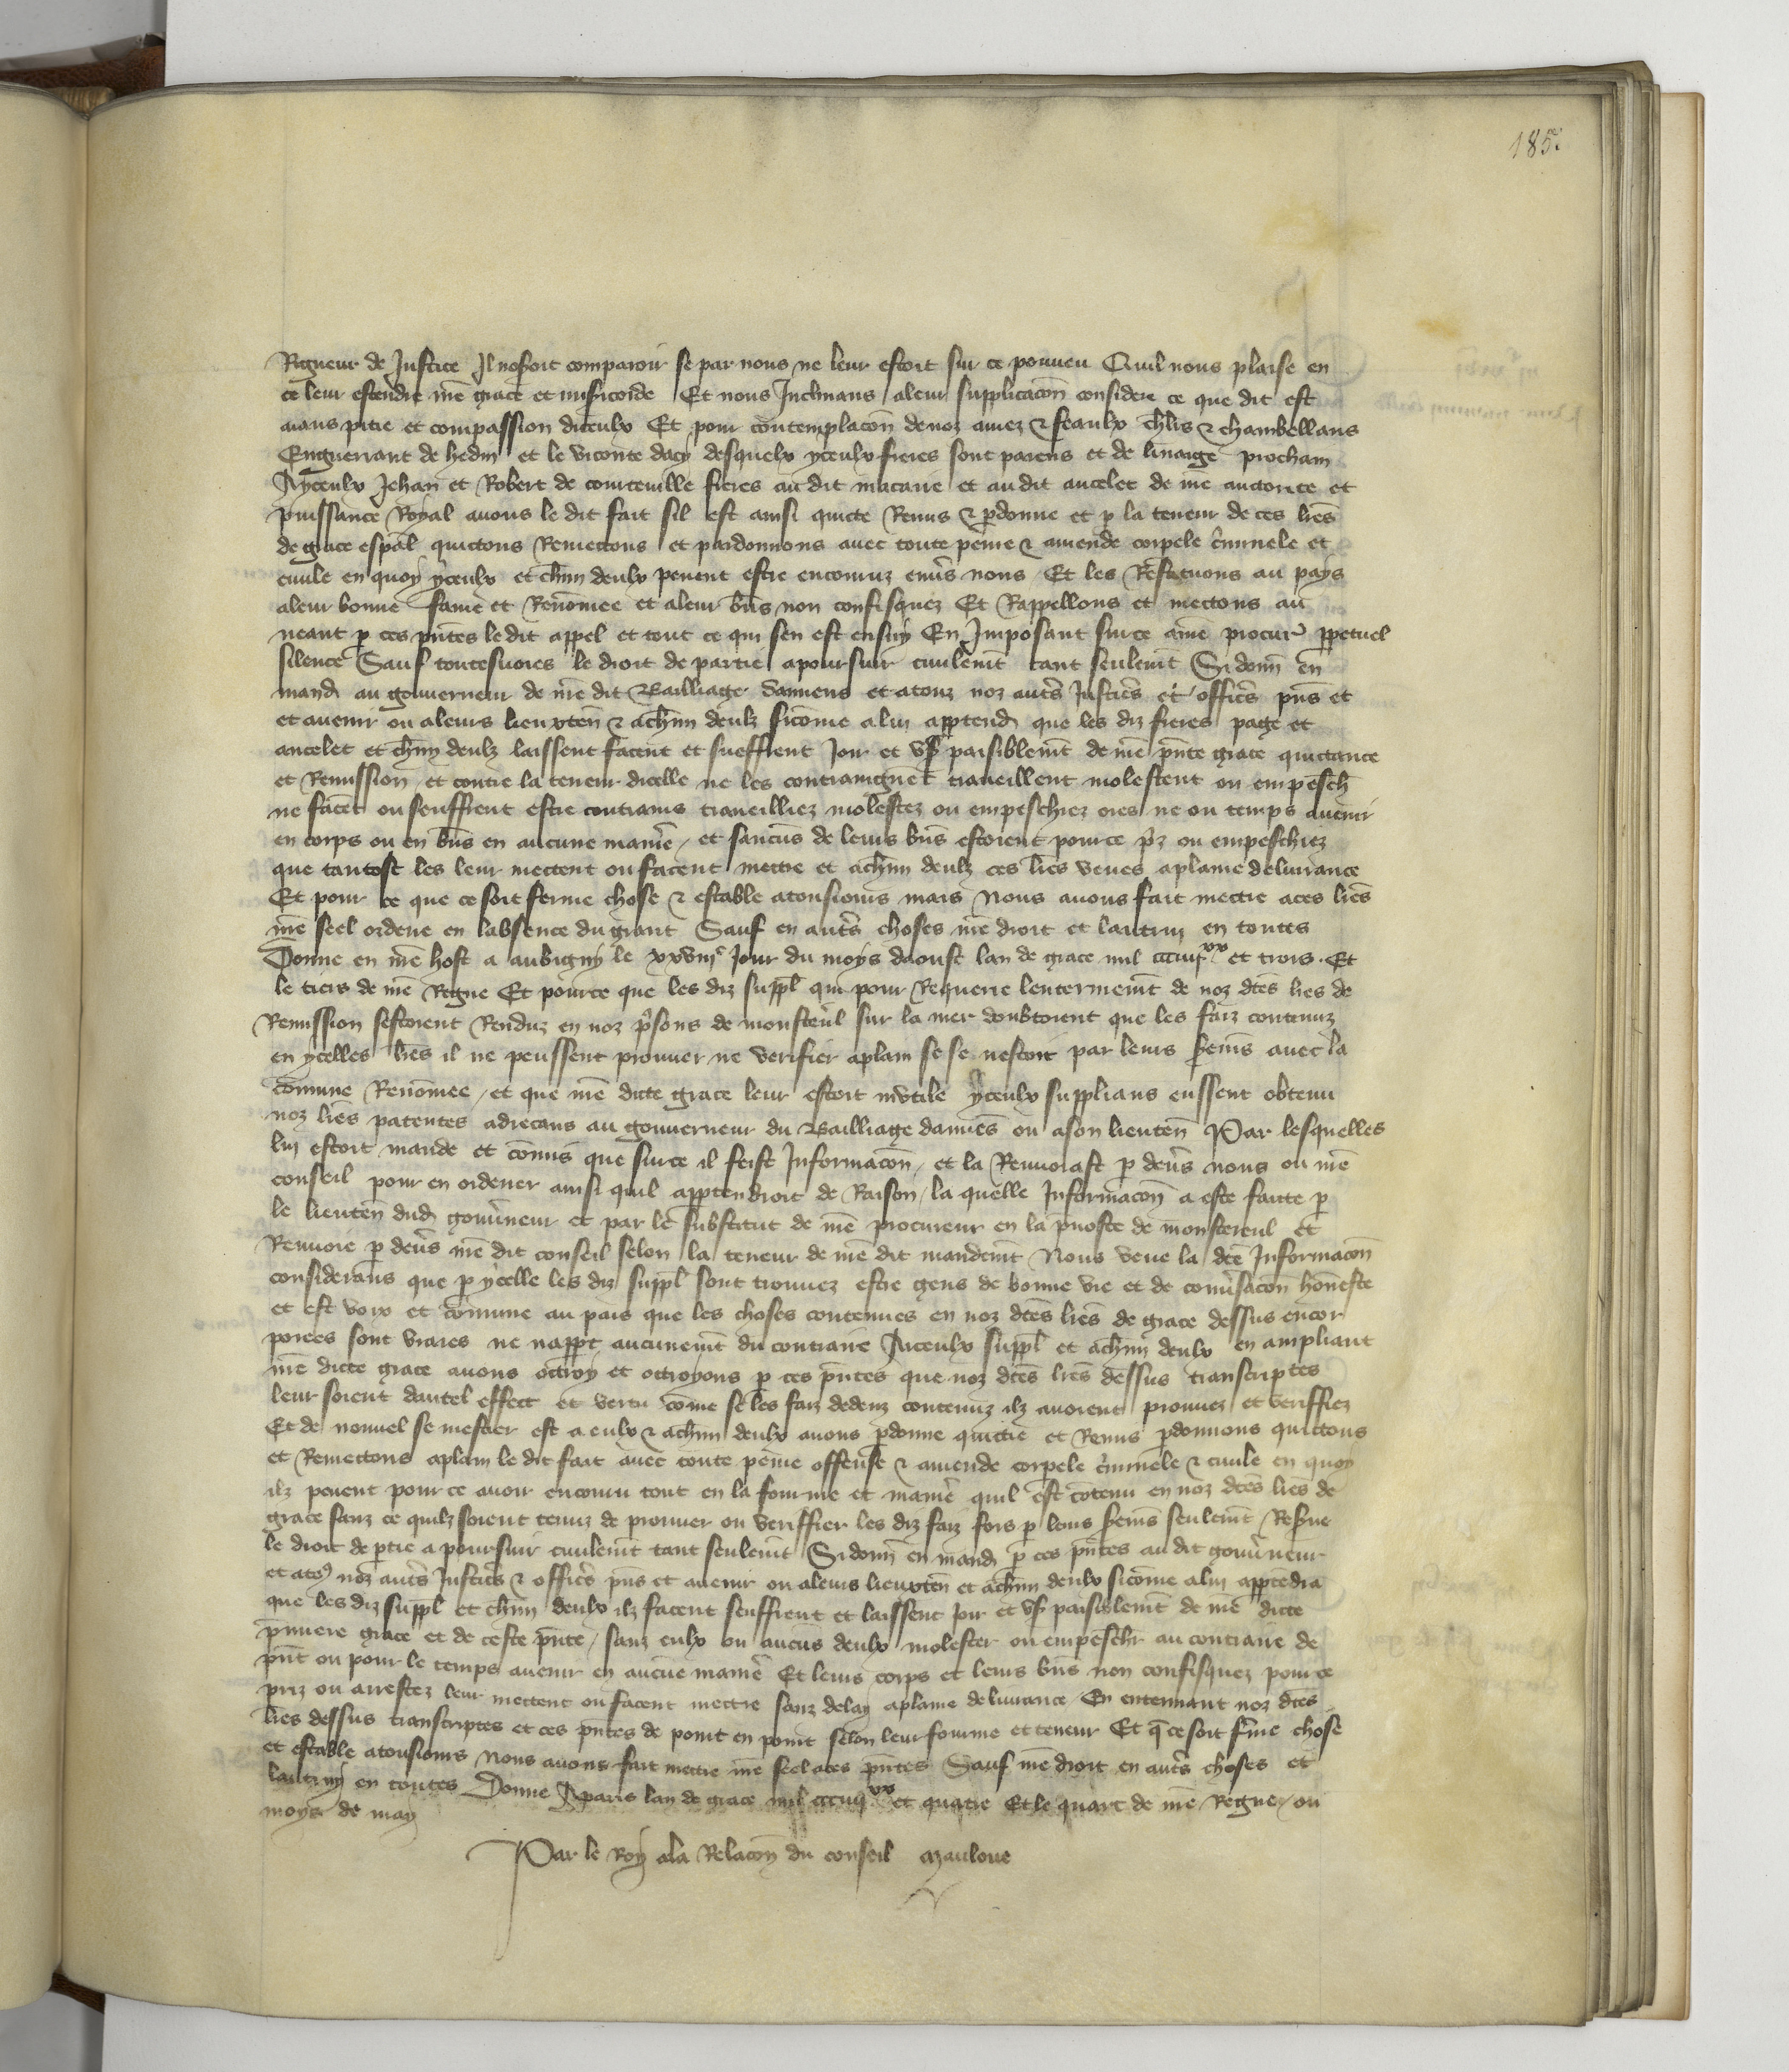 185.
Rigueur de Justice Il nosoit comparoir se par nous ne leur estoit sur ce pourveu Quil nous plaise en
ce leur estendre nr̄e grace et miscorde Et nous Inclinans aleur supplicacōn considere ce que dit est
aians pitie et compassion diceulx Et pour contemplacōn de noz amez & feaulx chl̄rs & chambellans
Enguerrant de hedin et le viconte dacy desquelx yceulx freres sont parens et de linaige procham
Ayceulx Jehan et Robert de courteville freres au dit macaire et au dit ancelet de nr̄e auctorite et
puissance Royal avons le dit fait sil est ainsi quicte Remis & p̄donne et p̄ la teneur de ces lr̄es
de grace esp̄al quictons Remectons et pardonnons avec toute peine & amende corpele c̄minele et
civile en quoy yceulx et ch̄un deulx pevent estre encouruz env̄s nous Et les Restituons au pays
aleur bonne fame et Renōmee et aleur bn̄s non confisquez Et Rappellons et mectons au
neant p̄ ces pn̄tes le dit appel et tout ce qui sen est ensuy En Imposant sur ce anr̄e procur̄ pp̄etuel
silence Sauf toutesvoies le droit de partie apoursuir civilemēt tant seulemēt Si donn̄ en
mand̄ au gouverneur de nr̄e dit Bailliage damiens et atouz noz autr̄s Justicr̄s et officr̄s pn̄s et
et avenir ou aleurs lieuxten̄ & ach̄un deulz sicōme a lui app̄tend̄ que les diz freres page et
ancelet et ch̄un deulz laissent facent et sueffrent Joir et us̄ paisiblemēt de nr̄e pn̄te grace quictance
et Remission et contre la teneur dicelle ne les contraingnēt traveillent molestent ou empesch̄
ne facēt ou seuffrent estre contrains traveilliez molestez ou empeschiez ores ne ou temps avenir
en corps ou en bn̄s en aucune manr̄e, et saucūs de leurs bn̄s estoient pource p̄z ou empeschiez
que tantost les leur mectent ou facent mectre et ach̄un deulz ces lr̄es veues aplaine delivrance
Et pour ce que ce soit ferme chose & estable atousiours mais Nous avons fait mectre aces lr̄es
nr̄e seel ordene en labsence du grant Sauf en autr̄s choses nr̄e droit et lautruy en toutes
Donne en nr̄e host a aubigny le xxviije Jour du moys daoust lan de grace mil ccciiijxx et trois. Et
le tiers de nr̄e Regne Et pource que les diz suppl̄ qui pour Requerre lenterinemēt de noz dc̄es lr̄es de
Remission sestoient Renduz en noz p̄sons de monsteūl sur la mer doubtoient que les faiz contenuz
en ycelles lr̄es il ne peussent prouver ne verifier aplain se se nestoit par leurs s̄emēs avec la
cōmune Renōmee, et que nr̄e dicte grace leur estoit inutile yceulx supplians eussent obtenu
noz lr̄es patentes adrecans au gouverneur du Bailliage damiēs ou ason lieuten̄ Par lesquelles
lui estoit mande et cōmis que surce il feist Informacōn, et la Renvoiast p̄ dev̄s nous ou nr̄e
conseil pour en ordener ainsi quil app̄tendroit de Raison, la quelle Informacōn a este faitte p̄
le lieuten̄ dud̄ gouv̄neur et par le substitut de nr̄e procureur en la p̄voste de monstereul et
Renvoie p̄ dev̄s nr̄e dit conseil selon la teneur de nr̄e dit mandemēt Nous veue la dc̄e Informacōn
considerans que p̄ ycelle les diz suppl̄ sont trouvez estre gens de bonne vie et de conv̄sacōn honneste
et est voix et cōmune au pais que les choses contenues en noz dc̄es lr̄es de grace dessus encor
porees sont vraies ne napp̄t aucunemēt du contraire Aiceulx suppl̄ et ach̄un deulx en ampliant
nr̄e dicte grace avons ottroy et ottroyons p̄ ces pn̄tes que noz dc̄es lr̄es dessus transcriptes
leur soient dautel effect et vertu cōme se les faiz dedenz contenuz ilz avoient prouvez et veriffiez
Et de nouvel se mestier est a eulx & ach̄un deulx avons p̄donne quictie et Remis p̄donnons quictons
et Remectons aplain le dit fait avec toute peine offense & amende corpele c̄minele & civile en quoy
ilz pevent pource avoir encouru tout en la fourme et manr̄e quil est cōtenu en noz dc̄es lr̄es de
grace sanz ce quilz soient tenuz de prouver ou veriffier les diz faiz fors p̄ leurs s̄emēs seulemēt Res̄ve
le droit de p̄tie a poursuir civilemēt tant seulemēt Si donn̄ en mand̄ p̄ ces pn̄tes au dit gouv̄neur
et ato9 noz autr̄s Justicr̄s & officr̄s pn̄s et avenir ou aleurs lieuxten̄ et ach̄un deulx sicōme alui app̄tēdra
que les diz suppl̄ et ch̄un deulx ilz facent seuffrent et laissent Joir et us̄ paisiblemēt de nr̄e dicte
p̄miere grace et de ceste pn̄te, sanz eulx ou aucūs deulx molester ou empesch̄r au contraire de
pn̄t ou pour le temps avenir en aucūe manr̄e Et leurs corps et leurs bn̄s non confisquez pour ce
priz ou arrestez leur mectent ou facent mectre sanz delay aplaine delivrance En enterinant noz dc̄es
lr̄es dessus transcriptes et ces pn̄tes de point en point selon leur fourme et teneur Et q̄ ce soit f̄me chose
et estable atousiours Nous avons fait mectre nr̄e seel aces pn̄tes Sauf nr̄e droit en autr̄s choses et
lautruy en toutes Donne Aparis lan de grace mil ccciiijxx et quatre Et le quart de nr̄e Regne, ou
moys de may
Par le Roy ala Relacōn du conseil Maulone